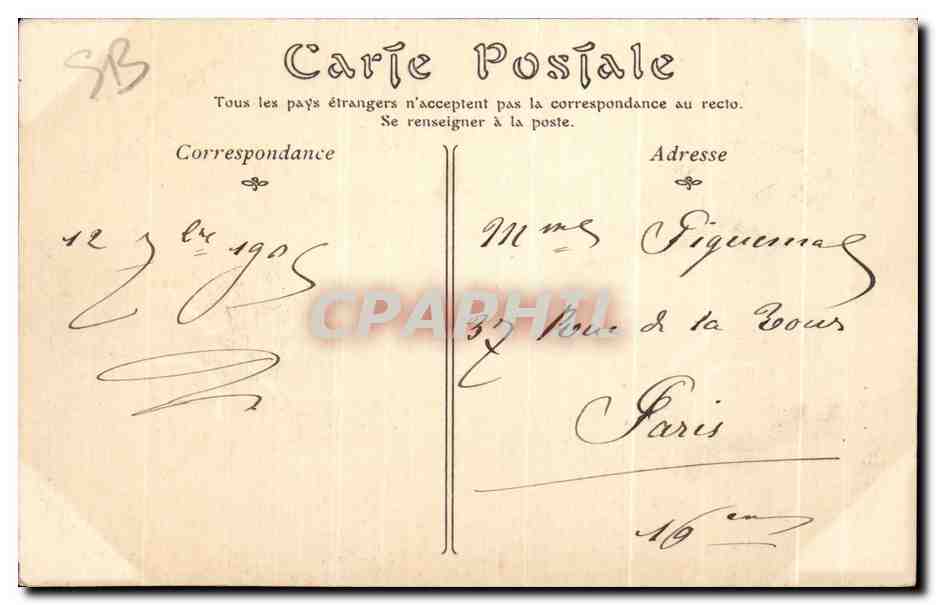 SB
Carte Postale
Tous les pays étrangers n'acceptent pas la correspondance au recto.
Se renseigner à la poste.
Correspondance
12 7bre 1905
Adresse
Mme Piquemal
37 Rue de la Tour
Paris
16em
CPAPHIL